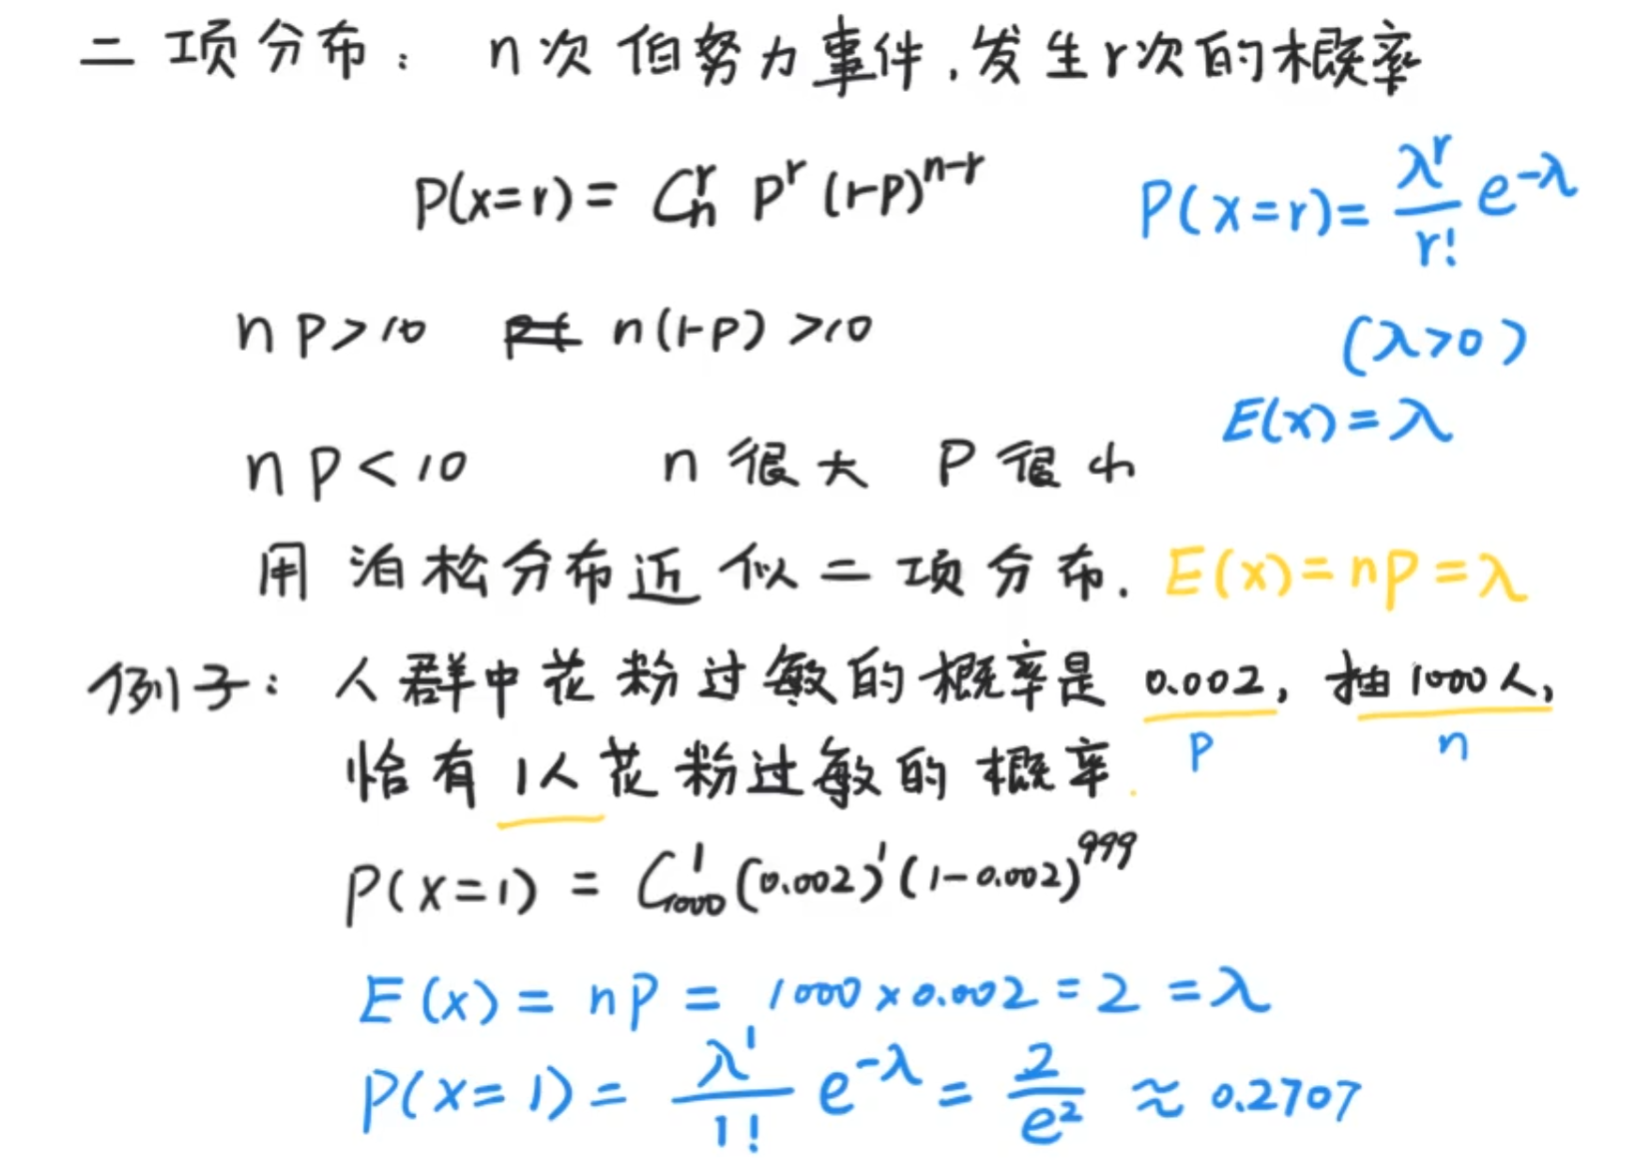 二项分布： n次伯努力事件，发生r次的概率
P(x=r) = C_n^r p^r (1-p)^{n-r}
P(x=r) = \frac{λ^r}{r!} e^{-λ}
np>10 n(1-p)>10
(λ>0)
E(x)=λ
np<10 n很大 P很小
用泊松分布近似二项分布. E(x)=np=λ
例子：人群中花粉过敏的概率是 0.002，抽1000人，
p n
恰有1人花粉过敏的概率.
P(x=1) = C_{1000}^1 (0.002)^1 (1-0.002)^{999}
E(x) = np = 1000×0.002 = 2 = λ
P(x=1) = \frac{λ^1}{1!} e^{-λ} = \frac{2}{e^2} ≈ 0.2707